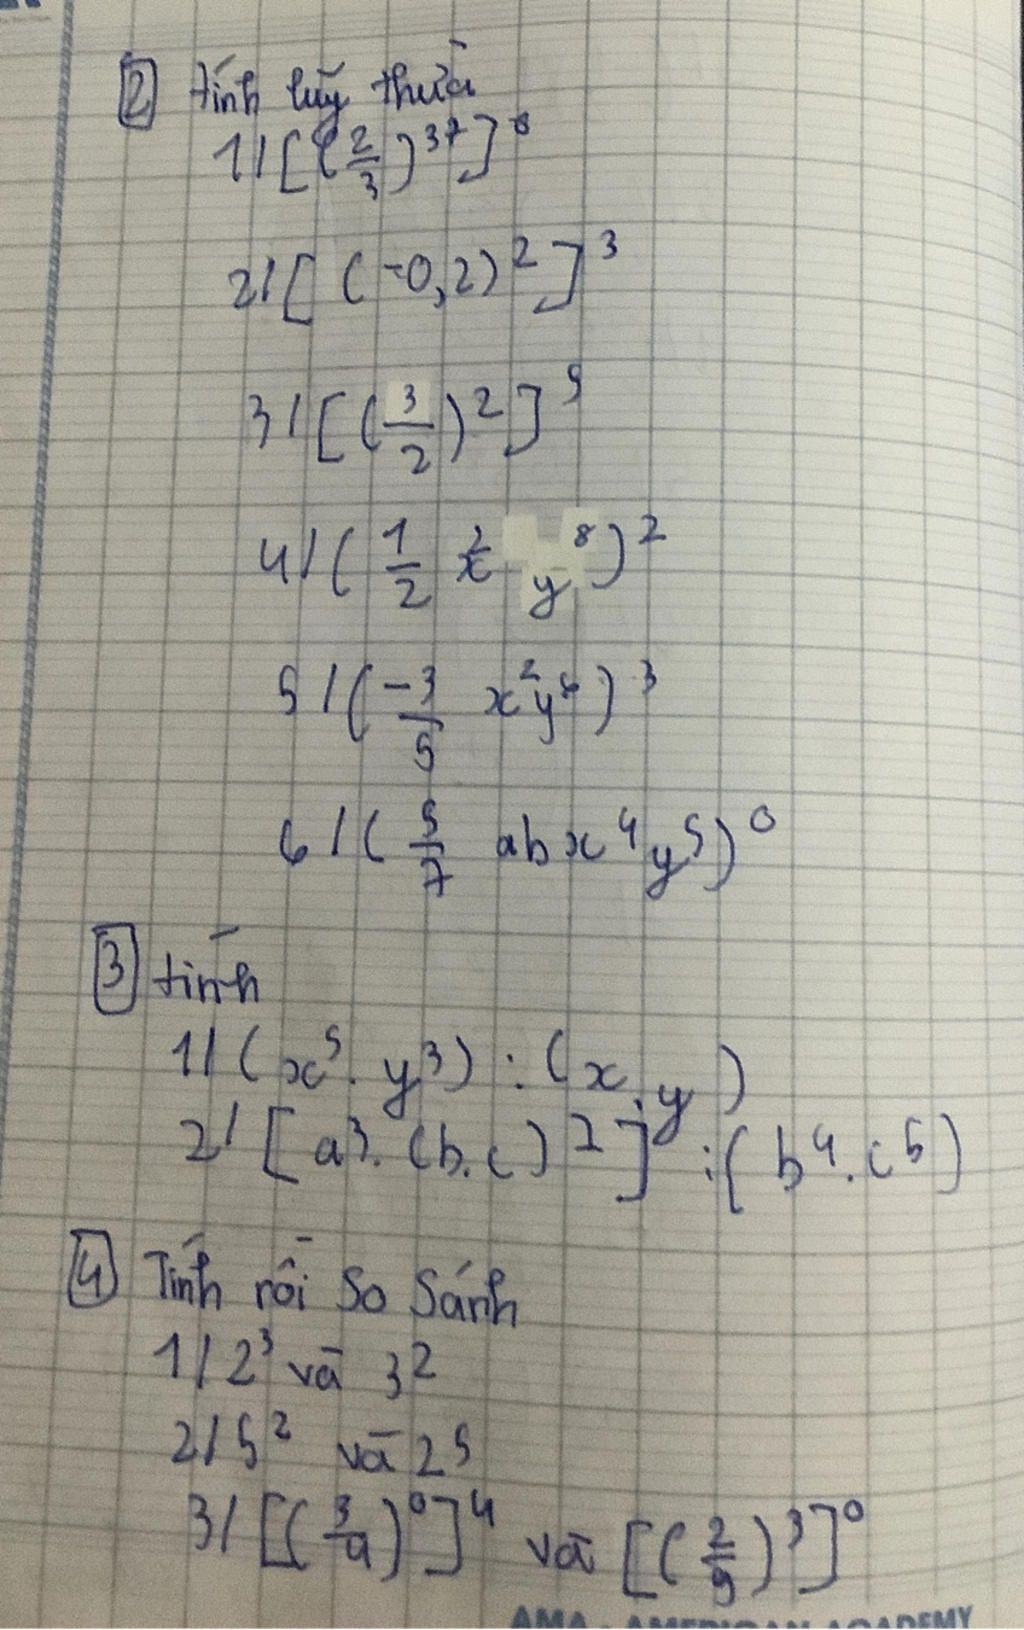 2 tính lũy thừa
1/ [(2/3)^37]^0
2/ [(-0,2)^2]^3
3/ [(3/2)^2]^5
4/ (1/2 x^2 y^8)^2
5/ (-3/5 x^2y^4)^3
6/ (5/7 abx^4y^5)^0
3 tính
1/ (x^5.y^3) : (x.y)
2/ [a^3.(b.c)^2] : (b^4.c^5)
4 Tính rồi So Sánh
1/ 2^3 và 3^2
2/ 5^2 và 2^5
3/ [(3/4)^0]^4 và [(2/9)^3]^0
AMA - AMERICAN ACADEMY